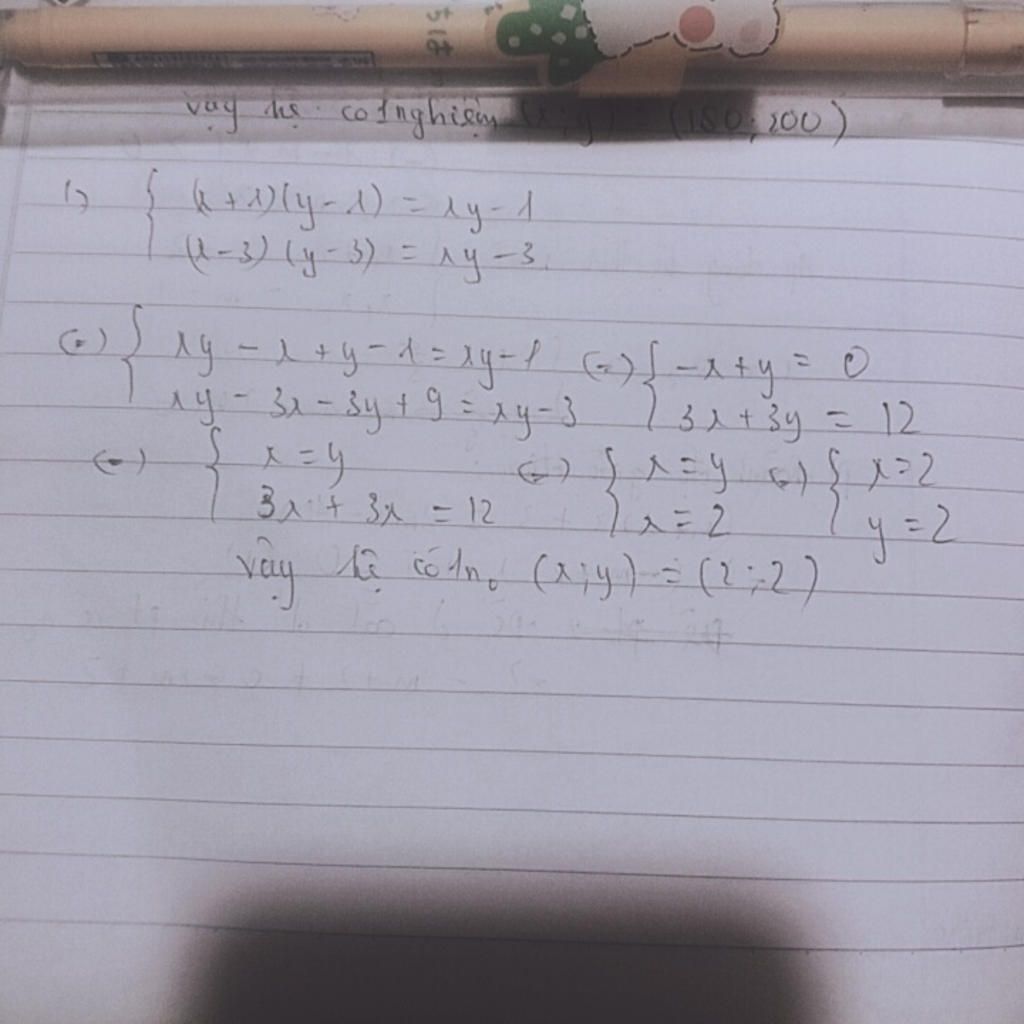 vậy hệ có 1 nghiệm (x;y) = (150;200)
1) { (x+1)(y-1) = xy-1
(x-3)(y-3) = xy-3
(=) { xy - x + y - 1 = xy-1 (=) { -x+y = 0
xy - 3x - 3y + 9 = xy-3 3x+3y = 12
(=) { x = y (=) { x = y (=) { x=2
3x + 3x = 12 x = 2 y = 2
vậy hệ có 1n0 (x;y) = (2;2)